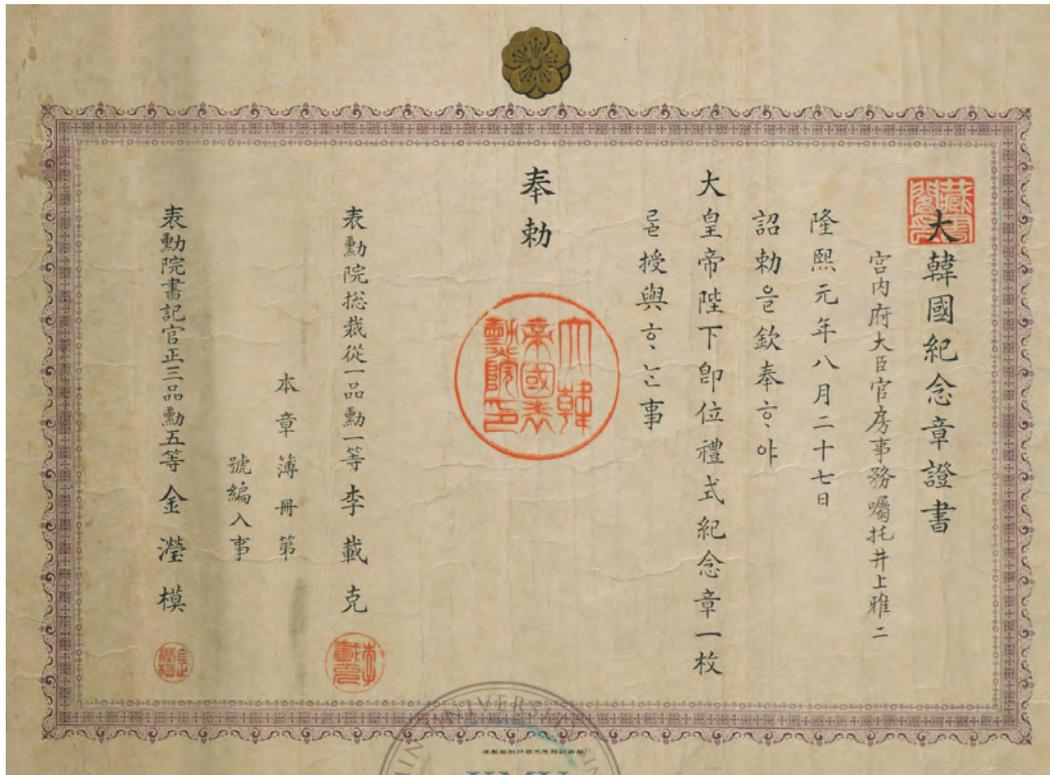 大韓國紀念章證書
宮内府大臣官房事務囑托井上雅二
隆熙元年八月二十七日
詔勅을欽奉ᄒᆞ야
大皇帝陛下卽位禮式紀念章一枚
ᄅᆞᆯ授與ᄒᆞᄂᆞᆫ事
奉勅
大韓帝國表勳院印
表勳院総裁從一品勳一等李載克
本章簿冊第
號編入事
表勳院書記官正三品勳五等金瀅模